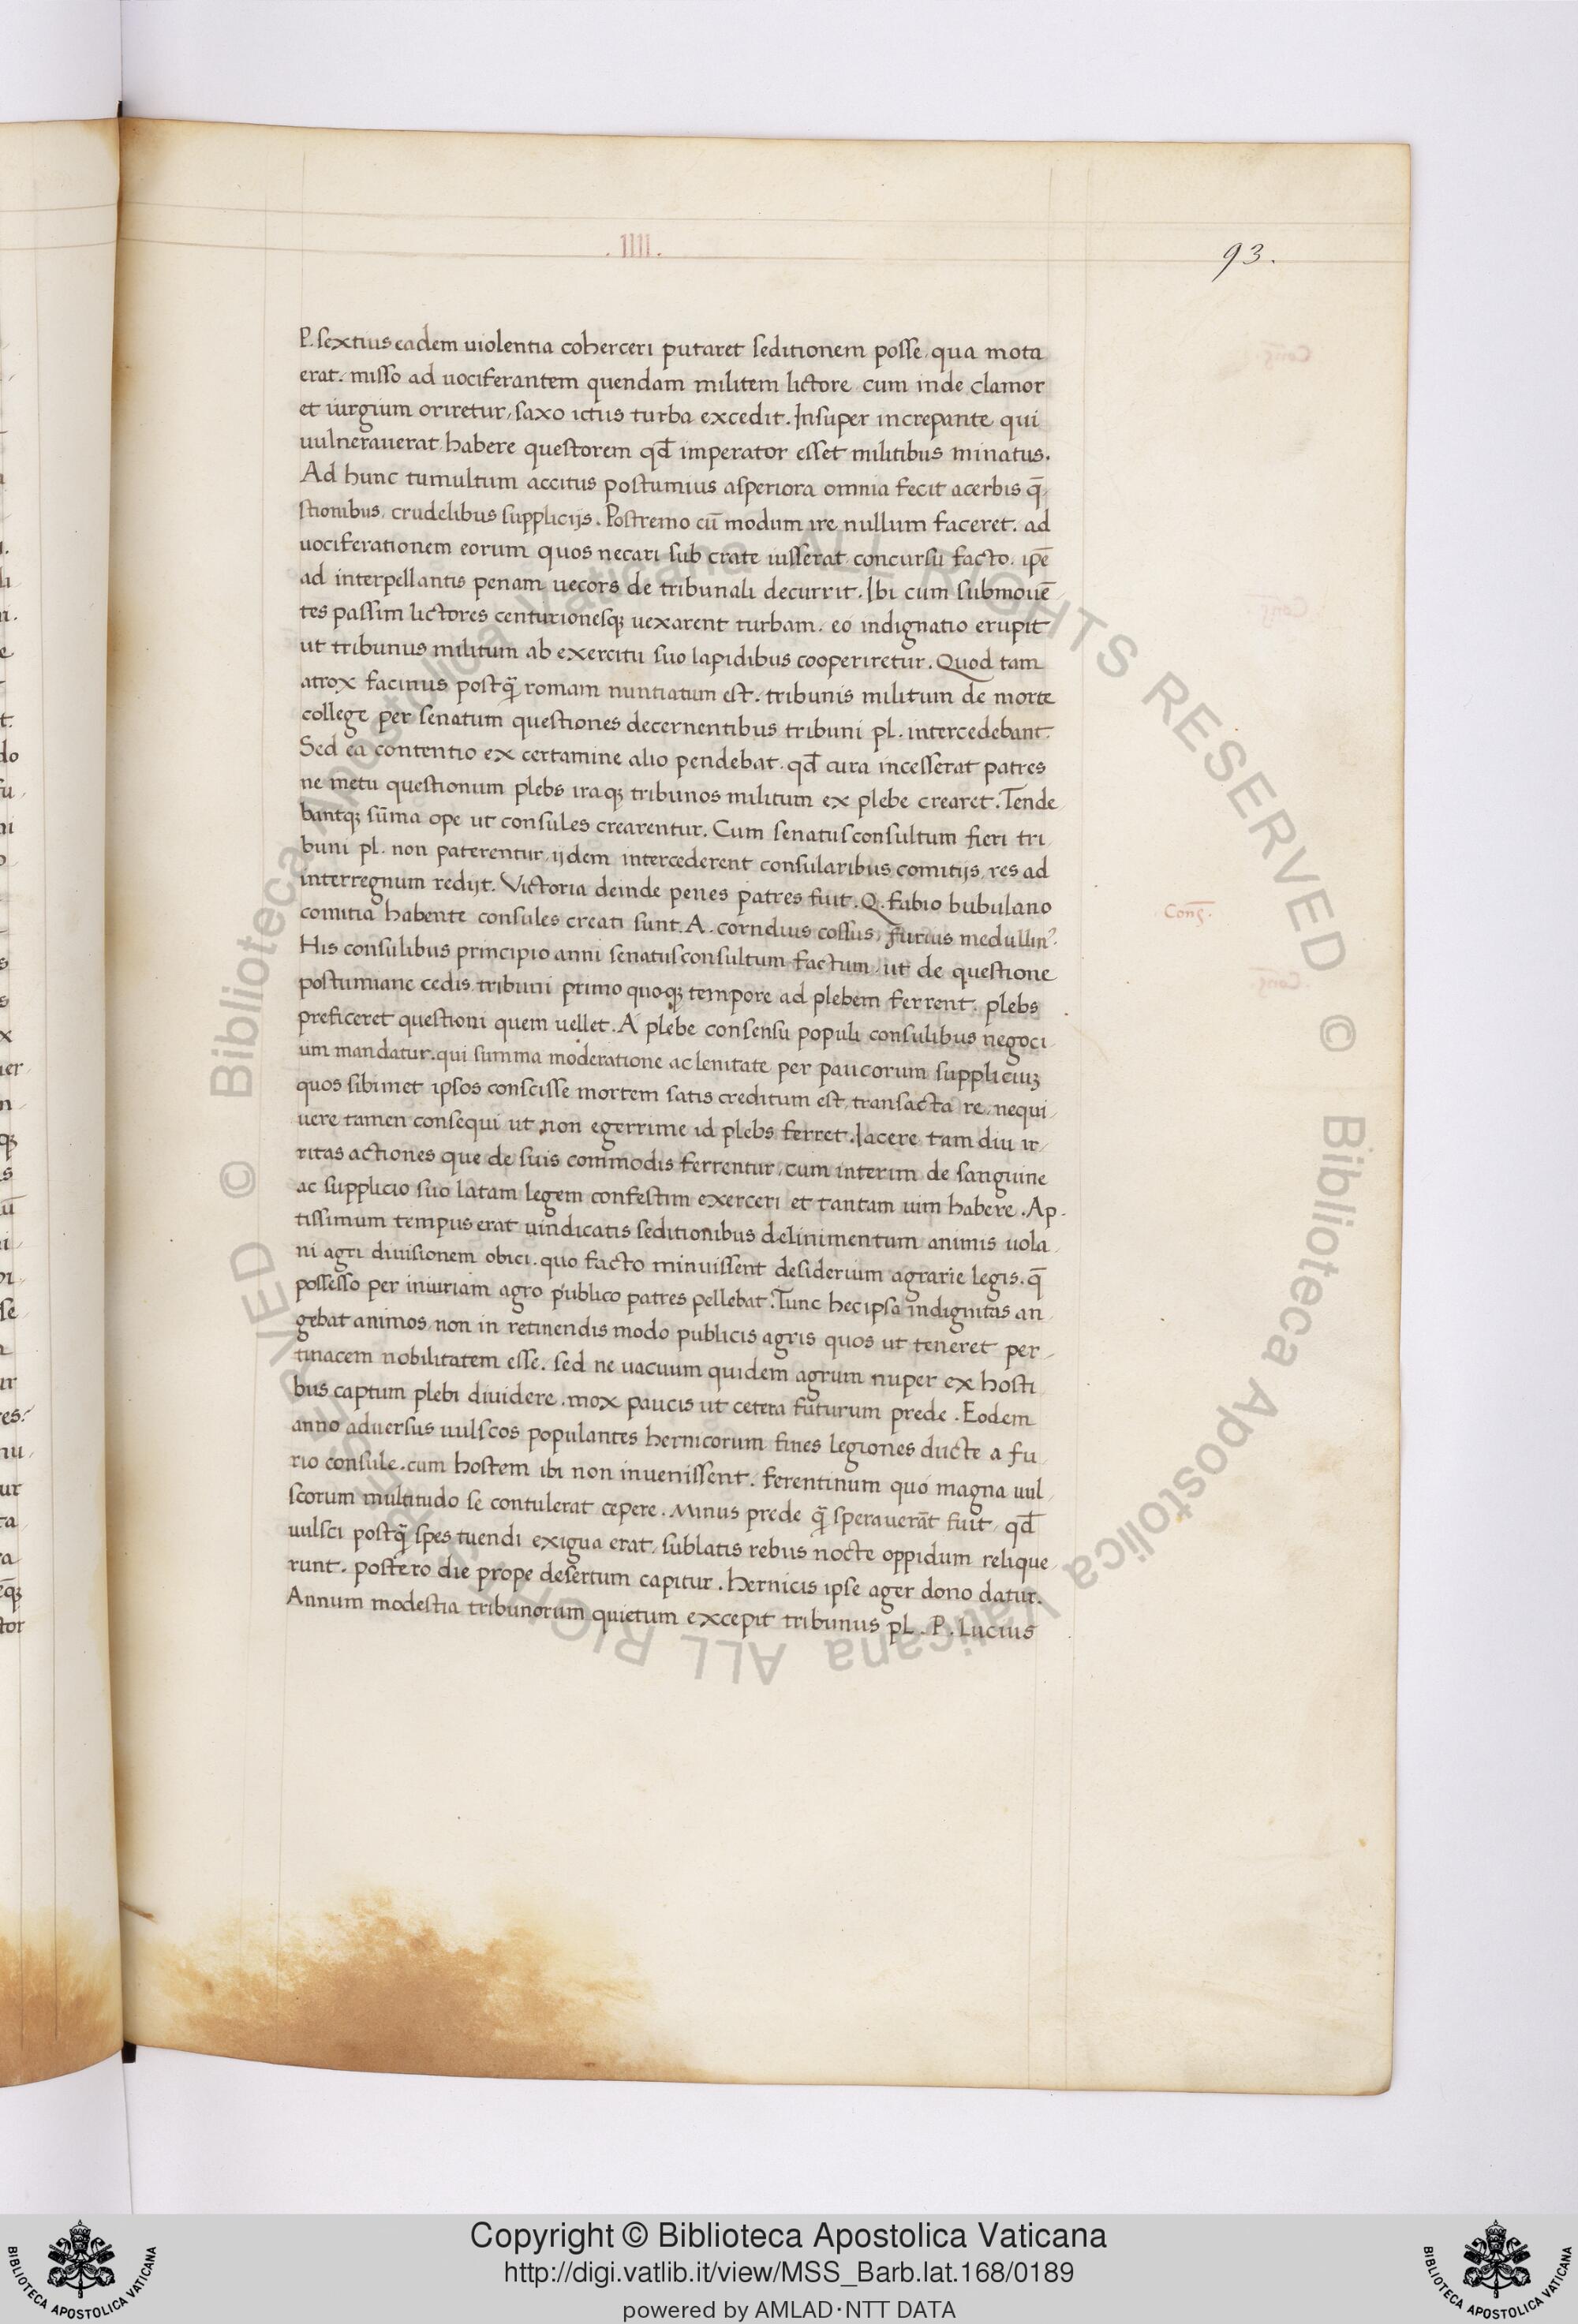 .IIII.
93.
P. sextius eadem uiolentia coherceri putaret seditionem posse, qua mota
erat. misso ad uociferantem quendam militem lictore cum inde clamor
et iurgium oriretur, saxo ictus turba excedit. Insuper increpante qui
uulnerauerat habere questorem qđ imperator esset militibus minatus.
Ad hunc tumultum accitus postumius asperiora omnia fecit acerbis q̄
stionibus, crudelibus supplicijs. Postremo cū modum ire nullum faceret. ad
uociferationem eorum quos necari sub crate iusserat concursu facto. ip̄e
ad interpellantis penam uecors de tribunali decurrit. Ibi cum submouē
tes passim lictores centurionesq; uexarent turbam. eo indignatio erupit
ut tribunus militum ab exercitu suo lapidibus cooperiretur. Quod tam
atrox facinus postq̄ romam nuntiatum est. tribunis militum de morte
college per senatum questiones decernentibus tribuni pl. intercedebant.
Sed ea contentio ex certamine alio pendebat. qđ cura incesserat patres
ne metu questionum plebs iraq; tribunos militum ex plebe crearet. Tende
bantq; sūma ope ut consules crearentur. Cum senatusconsultum fieri tri
buni pl. non paterentur, ijdem intercederent consularibus comitijs, res ad
interregnum redijt. Victoria deinde penes patres fuit. Q. fabio bubulano
comitia habente consules creati sunt. A. cornelius cossus, furius medullin9.
Cons̄.
His consulibus principio anni senatusconsultum factum, ut de questione
postumiane cedis tribuni primo quoq; tempore ad plebem ferrent. plebs
preficeret questioni quem uellet. A plebe consensu populi consulibus negoci
um mandatur. qui summa moderatione ac lenitate per paucorum supplicium
quos sibimet ipsos conscisse mortem satis creditum est, transacta re, nequi
uere tamen consequi ut non egerrime id plebs ferret. Iacere tam diu ir
ritas actiones que de suis commodis ferrentur, cum interim de sanguine
ac supplicio suo latam legem confestim exerceri et tantam uim habere. Ap
tissimum tempus erat uindicatis seditionibus delinimentum animis uola
ni agri diuisionem obici. quo facto minuissent desiderium agrarie legis. q̄
possesso per iniuriam agro publico patres pellebat. Tunc hec ipsa indignitas an
gebat animos, non in retinendis modo publicis agris quos ut teneret per
tinacem nobilitatem esse. sed ne uacuum quidem agrum nuper ex hosti
bus captum plebi diuidere. mox paucis ut cetera futurum prede. Eodem
anno aduersus uulscos populantes hernicorum fines legiones ducte a fu
rio consule. cum hostem ibi non inuenissent. ferentinum quo magna uul
scorum multitudo se contulerat cepere. Minus prede q̄ sperauerāt fuit, qđ
uulsci postq̄ spes tuendi exigua erat, sublatis rebus nocte oppidum relique
runt. postero die prope desertum capitur. hernicis ipse ager dono datur.
Annum modestia tribunorum quietum excepit tribunus pl. P. Lucius
Copyright © Biblioteca Apostolica Vaticana
http://digi.vatlib.it/view/MSS_Barb.lat.168/0189
powered by AMLAD·NTT DATA
BIBLIOTECA APOSTOLICA VATICANA
BIBLIOTECA APOSTOLICA VATICANA